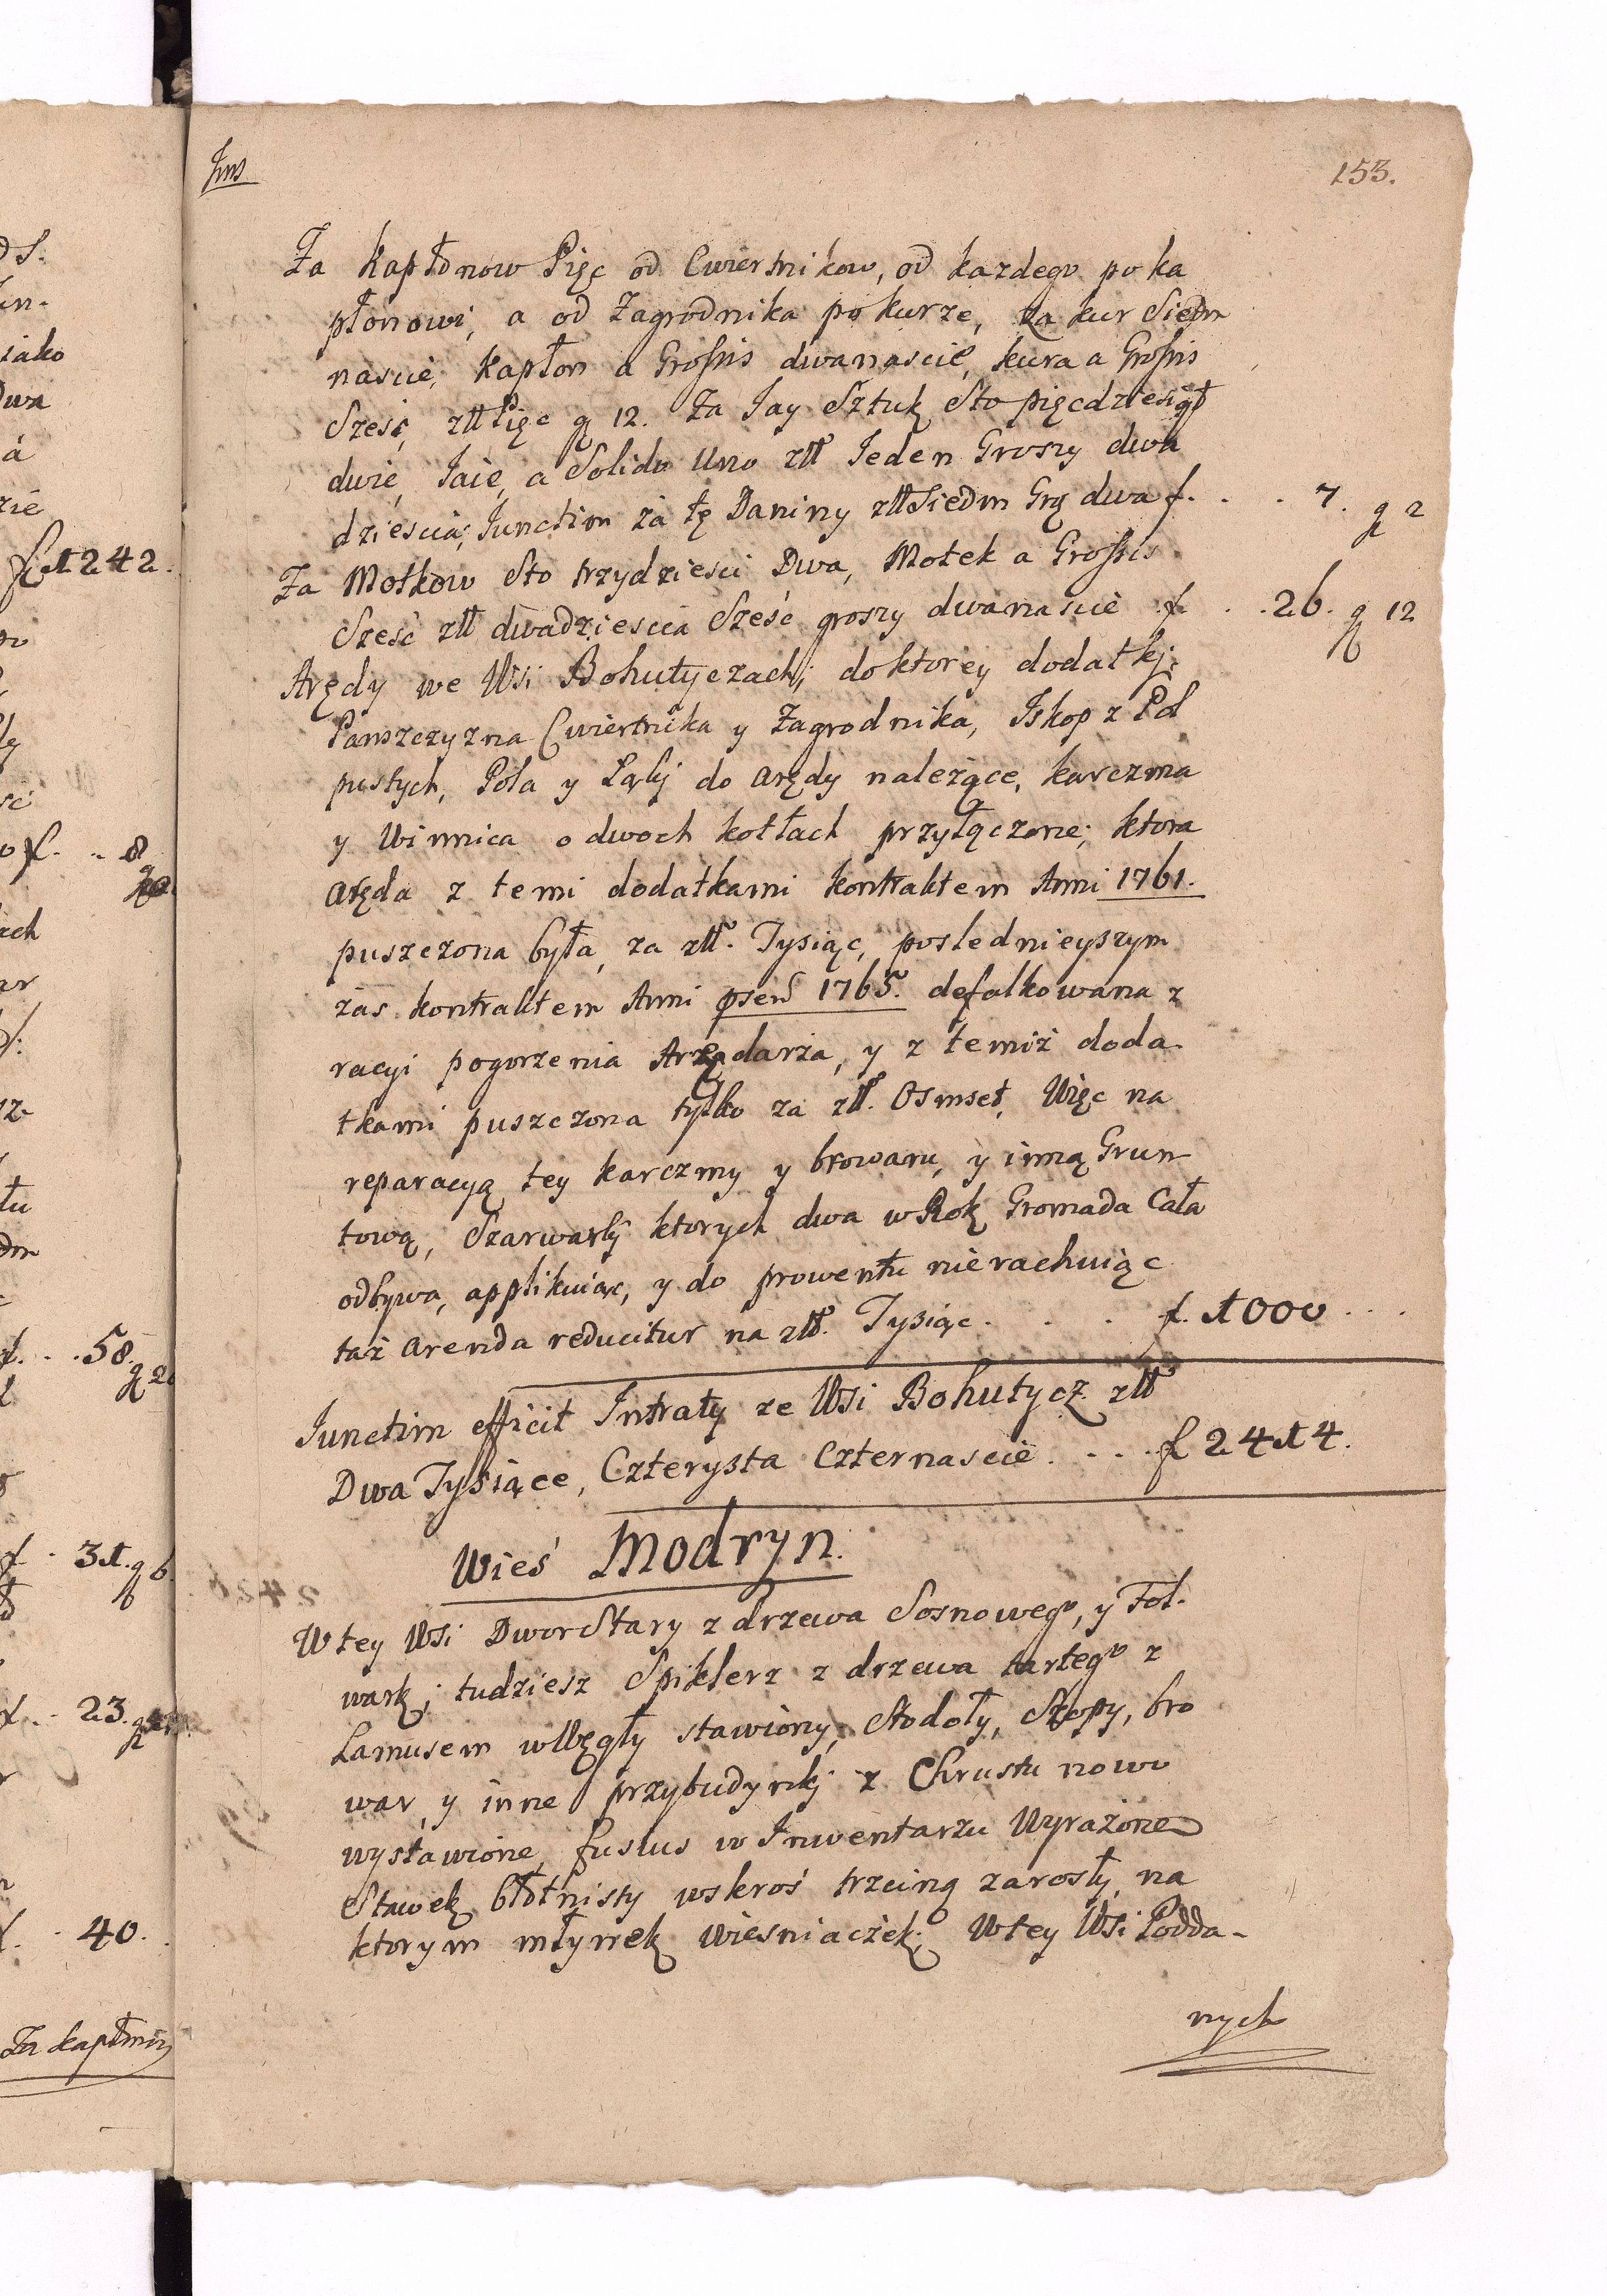 153.
Za Kapłonow Pięc od Cwiertnikow, od kazdego po ka
płonowi, a od Zagrodnika po kurze, Za kur Siedm
nascie, Kapłon a Grossis dwanascie, kura a Grossis
Sześć, złł Pięc g 12. Za Jay Sztuk Sto pięcdziesiąt
dwie, Jaie, a Solido Uno złł Jeden Groszy dwa
dziescia; Junctim za tę Daniny złł Siedm Grg dwa f. . . 7. g 2
Za Motkow Sto trzydziesci Dwa, Motek a Grossis
Sześć złł dwadziescia Sześć groszy dwanascie f. . . 26. g 12
Arędy we Wsi Bohutyczach, do ktorey dodatkj;
Panszczyzna Cwiertnika y Zagrodnika, Iskop z Pol
pustych, Pola y Łąkj do arędy należące, karczma
y Winnica o dwoch kotłach przyłączone; ktora
aręda z temi dodatkami kontraktem Anni 1761.
puszczona była, za złł. Tysiąc, poslednieyszym
zas kontraktem Anni psen 1765. defalkowana z
racyi pogorzenia Arędarza, y z temiż doda-
tkami puszczona tylko za złł. Osmset, Więc na
reparacyą tey karczmy y browaru, y inną Grun
tową, Szarwarkj ktorych dwa w Rok Gromada Cała
odbywa, applikuiąc, y do prowentu nierachuiąc
taż arenda reducitur na złł. Tysiąc. . . . f. 1000 . . .
Junctim efficit Intraty ze Wsi Bohutycz złł
Dwa Tysiące, Czterysta Czternascie . . . f 2414.
Wieś Modryn.
W tey Wsi Dwor Stary z drzewa Sosnowego, y Fol-
wark; tudziesz Spiklerz z drzewa tartego z
Lamusem w Węgły stawiony, Stodoły, Szopy, bro
war, y inne przybudynkj z Chrustu nowo
wystawione, fusius w Inwentarzu Wyrażone
Stawek błotnisty wskroś trzciną zarosły, na
ktorym młynek Wiesniaczek; W tey Wsi Podda-
nych
f 1242.
8
58.
31. g 6.
23.
40.
Za kapłonow